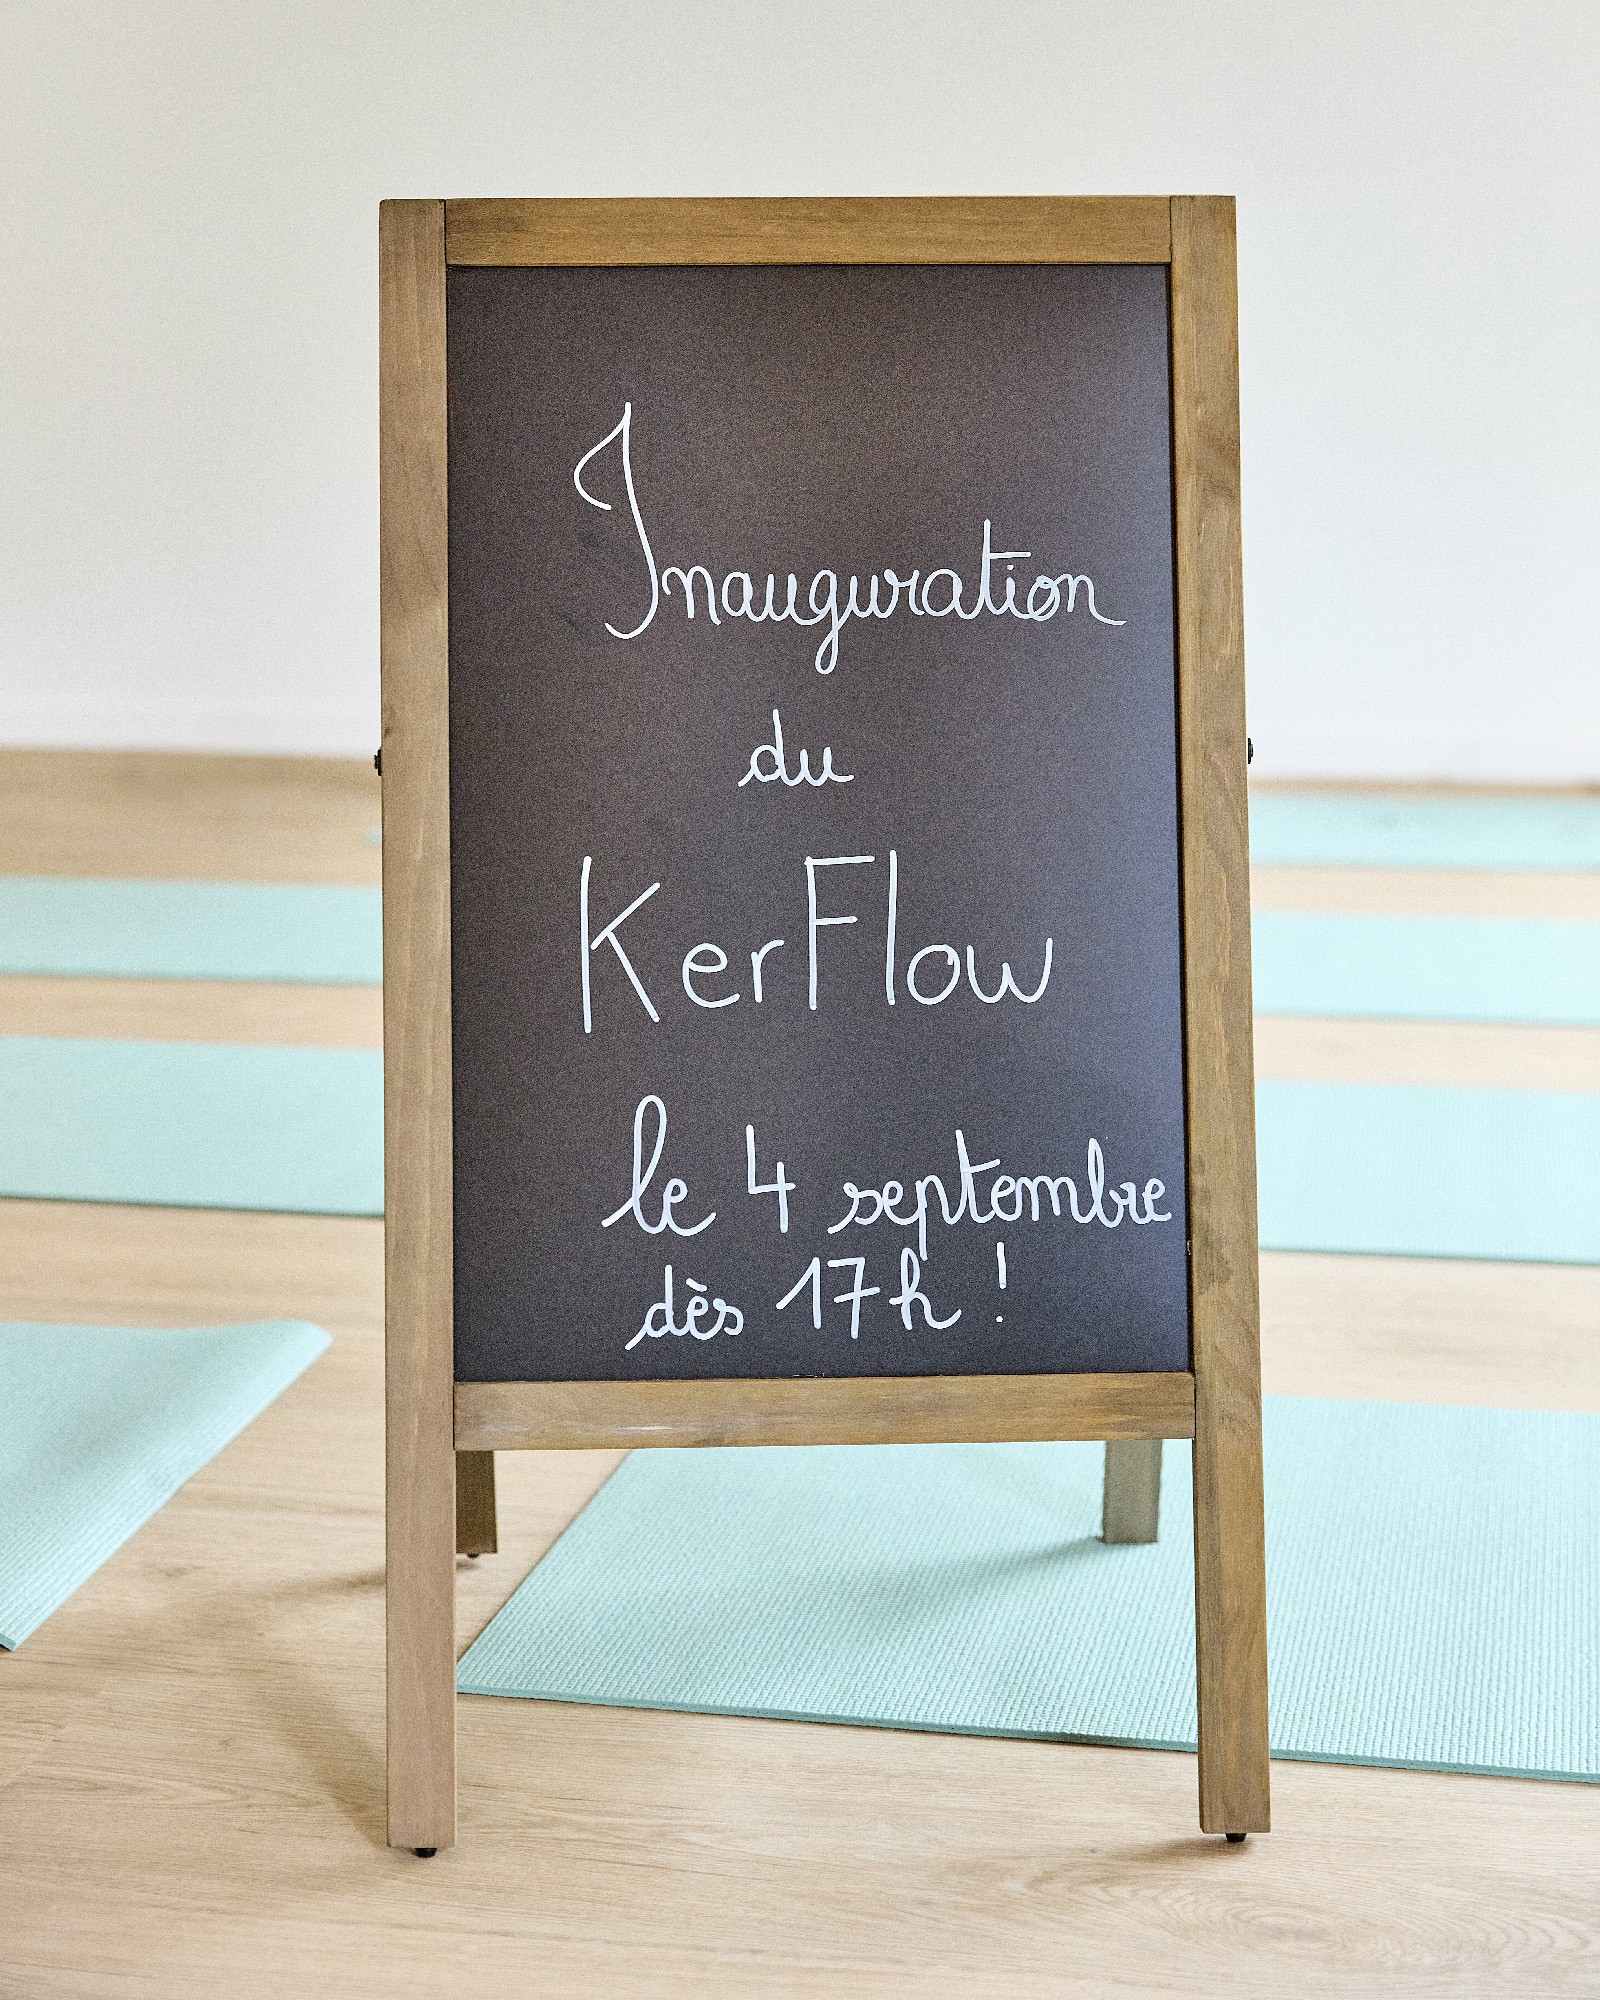 Inauguration
du
KerFlow
le 4 septembre
dès 17h !